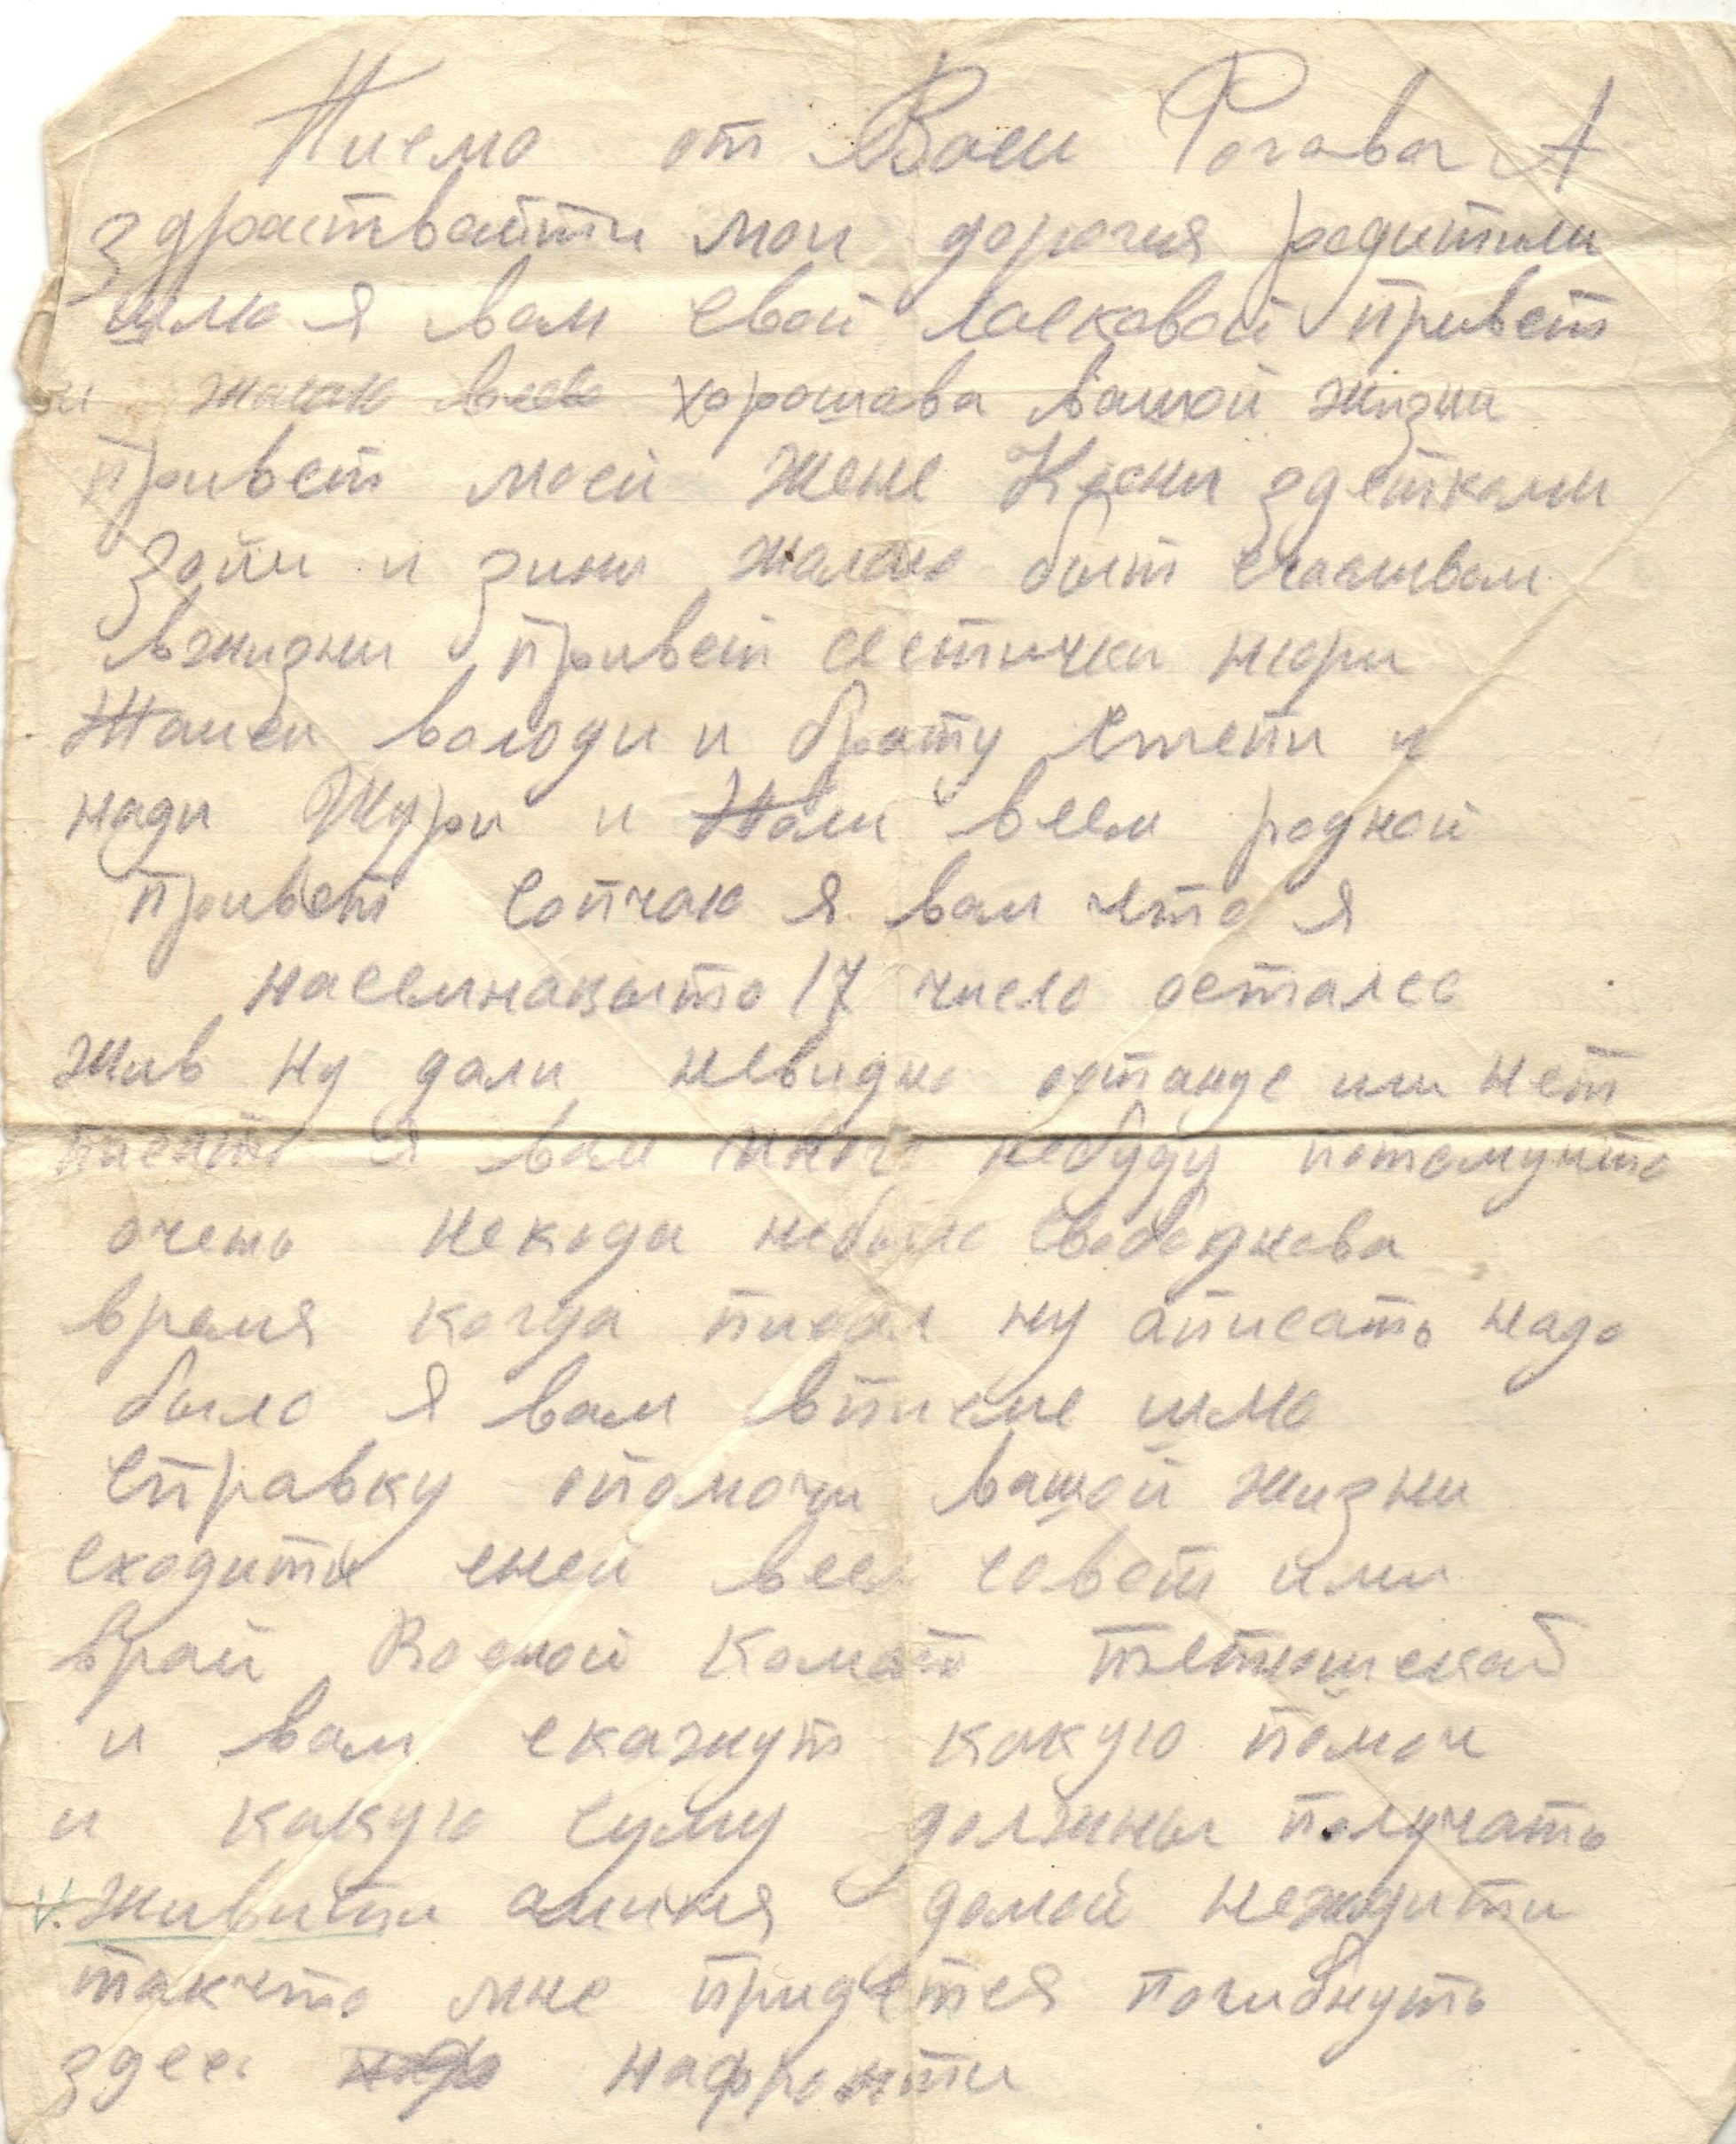 Писмо от Васи Рогава А
здраствайти мои дорогия родитили
шлю я вам свой ласковой привет
и жалаю всево хорошава вашой жизни
привет моей жене Ксени здетками
Зойи и зини жалаю быт счасливами
вжизни привет сестички нюри
володи и брату степи и
нади Шури и всем родной
привет сопчаю я вам что я
насеминацыто 17 число осталса
жив ну дали невидно останус или нет
писать я вам много небуду потомушто
очень некода небыло свабоднова
время когда писал ну описать надо
было я вам вписме шлю
справку опомочи вашой жизни
сходити сней всел совет или
врай Военой Комат тетюшскай
и вам скажут какую помоч
и какую суму должны получать
живити аминя домой нежодити
такчто мне придется погибнуть
здес нафронти